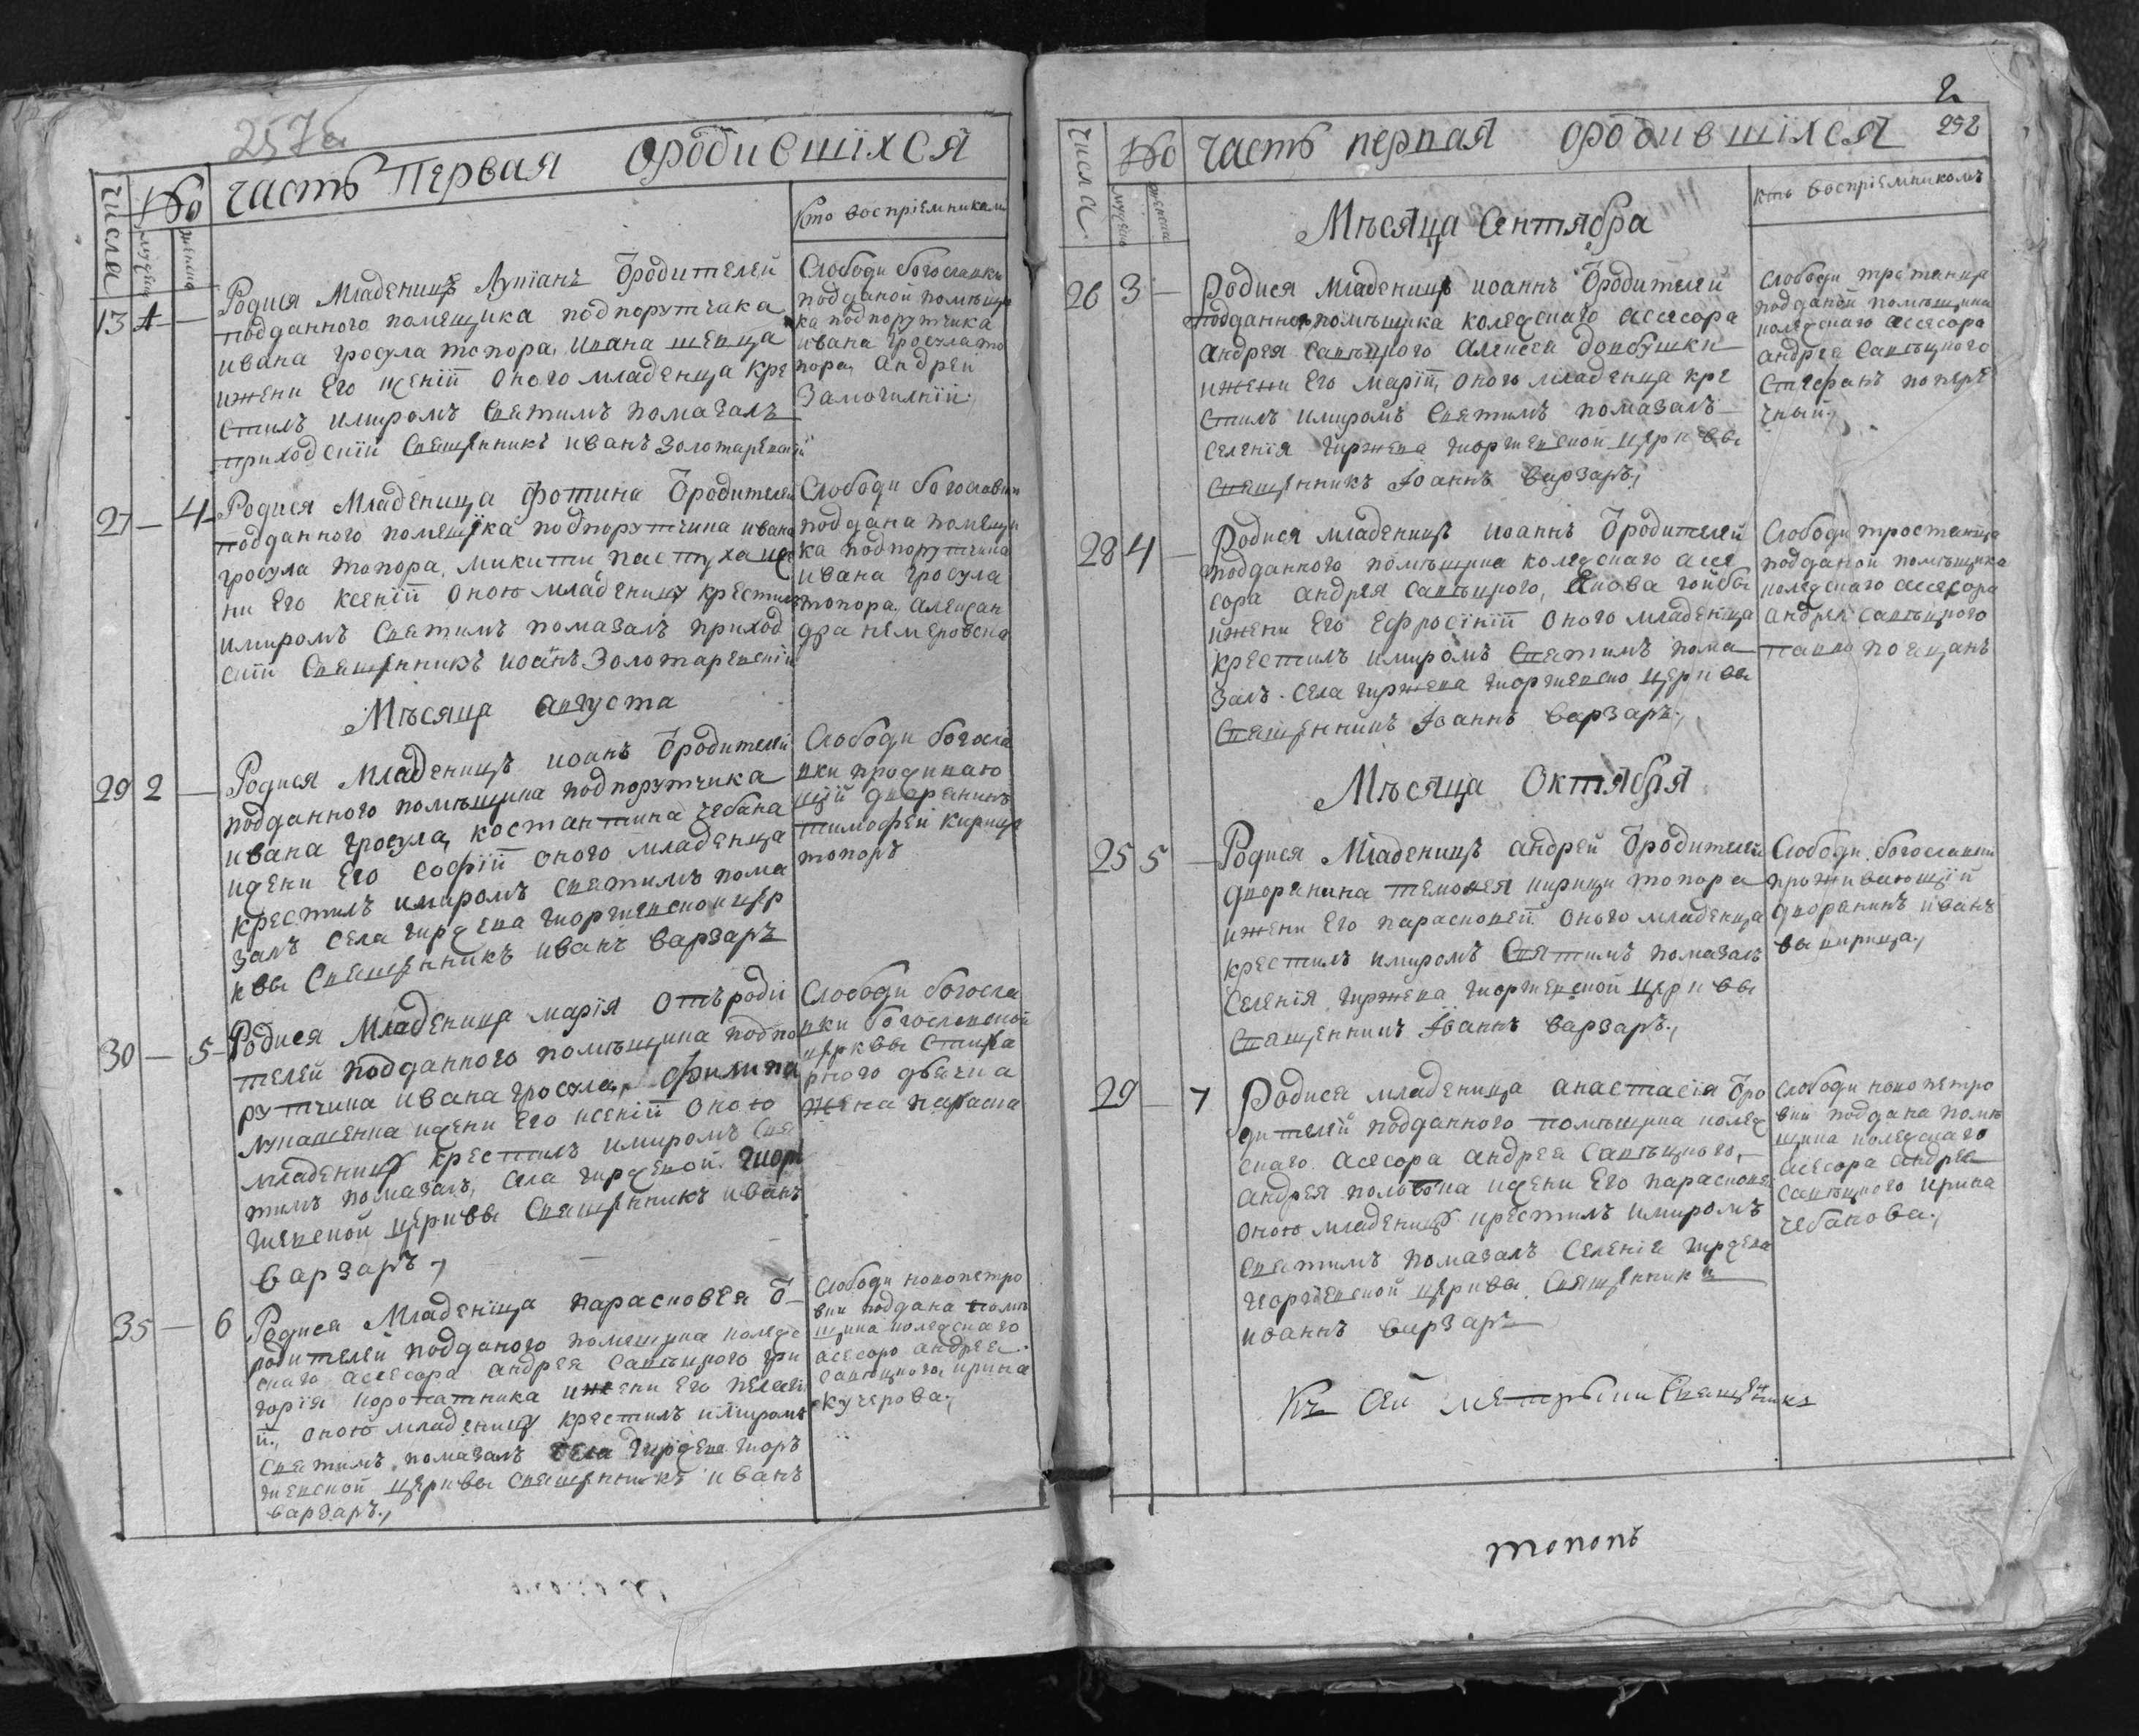 257а
Числа
Но
Часть Первая ородившихся
мужеска
женска
Кто воспріемникомъ
13
1
Родися Младенецъ Лупїанъ Ѿродителей
подданного помещика подпорутчика
ивана гросула топора, ивана шевца
ижени Его ксенїи оного младенца кре
стилъ имиромъ святимъ помазалъ
приходскїй священникъ иванъ Золотаревскїй
Слободи богославки
подданой помещи
ка подпорутчика
ивана гросула то
пора, андрей
Замогилнїй
27
4
Родися Младеница фотина Ѿродителей
подданного помещика подпорутчика ивана
гросула топора, микити пастуха иже
ни Его ксенїи оною младеницу крестилъ
имиромъ святимъ помазалъ приход
скїй священникъ иоанъ Золотаревскїй
Слободи богославки
поддана помещи
ка подпорутчика
ивана гросула
топора, алексан
дра немеровска
Мѣсяца августа
29
2
Родися Младеницъ иоанъ Ѿродителей
подданного помѣщика подпорутчика
ивана гросула, костантина чебана
ижени Его софїи оного младенца
крестилъ имиромъ святимъ пома
залъ села гиржева гиоргиевской цер
кви священникъ иванъ варзаръ
Слободи богосла
вки проживаю
щїй дворанинъ
тимофей кирица
топоръ
30
5
Родися Младеница марїя отъроди
телей подданного помѣщика подпо
рутчика ивана гросула, филипа
лукашенка ижени Его ксенїи оною
младеницу крестилъ имиромъ свя
тимъ помазалъ, села гиржевой гиорг
гиевской церкви священникъ иванъ
варзаръ,
Слободи богосла
вки богословской
церкви стиха
рного двячка
жена параска
35
6
Родися Младенїца парасковея Ѿ
родителей подданого помещика колеж
скаго асесора андрея савѣцкого гри
горїя коропатника ижени Его пелаги
и, оною младеницу крестилъ имиромъ
святимъ помазалъ села гиржева гиоръ
гиевской церкви священникъ иванъ
варзаръ,
Слободи новопетро
вки поддана помѣ
щика колежскаго
асесоро андрея
савѣцкого, ирина
кучерова,
2
252
Числа
Но
часть первая ородившихся
мужеска
женска
Кто воспріемникомъ
Мѣсяца Сентября
26
3
Родися младеницъ иоаннъ Ѿродителей
подданного помѣщика колежскаго асесора
андрея савѣцкого алексея довбушки
ижени Его марїи, оного младенца кре
стилъ имиромъ святимъ помазалъ
селенїя гиржева гиоргиевской церкви
священникъ Іоаннъ варзаръ,
слободи тростенца
подданой помѣщика
колежскаго асесора
андрея савѣцкого
стефанъ попере
чный,
28
4
Родися младеницъ иоаннъ Ѿродителей
подданного помѣщика колежскаго асе
сора андрея савѣцкого, якова гойбы
ижени Его Ефросїнїи оного младенца
крестилъ имиромъ святимъ пома
залъ села гиржева гиоргиевско церкви
священникъ Іоаннъ варзаръ,
Слободи тростенца
подданой помѣщика
колежскаго асесора
андрея савѣцкого
Мѣсяца Октября
25
5
Родися Младеницъ андрей Ѿродителей
дворянина темофея кирици топора
ижени Его парасковеи оного младенца
крестилъ имиромъ святимъ помазалъ
Селенїя гиржева гиоргиевской церкви
священникъ Іоаннъ варзаръ,
Слободи богославки
проживающїй
дворанинъ иванъ
кирица,
29
7
Родися младеница анастасїя Ѿро
дителей подданного помѣщика колеж
скаго асесора андрея савѣцкого,
андрея половона ижени Его парасковеи
оною младеницу крестилъ имиромъ
святимъ помазалъ селенїя гиржева
гиоргиевской церкви священникъ
иоаннъ варзаръ
слободи новопетро
вки поддана помѣ
щика колежскаго
асесора андрея
савѣцкого ирина
чебанова,
Къ сей метрыки священникъ
топоръ